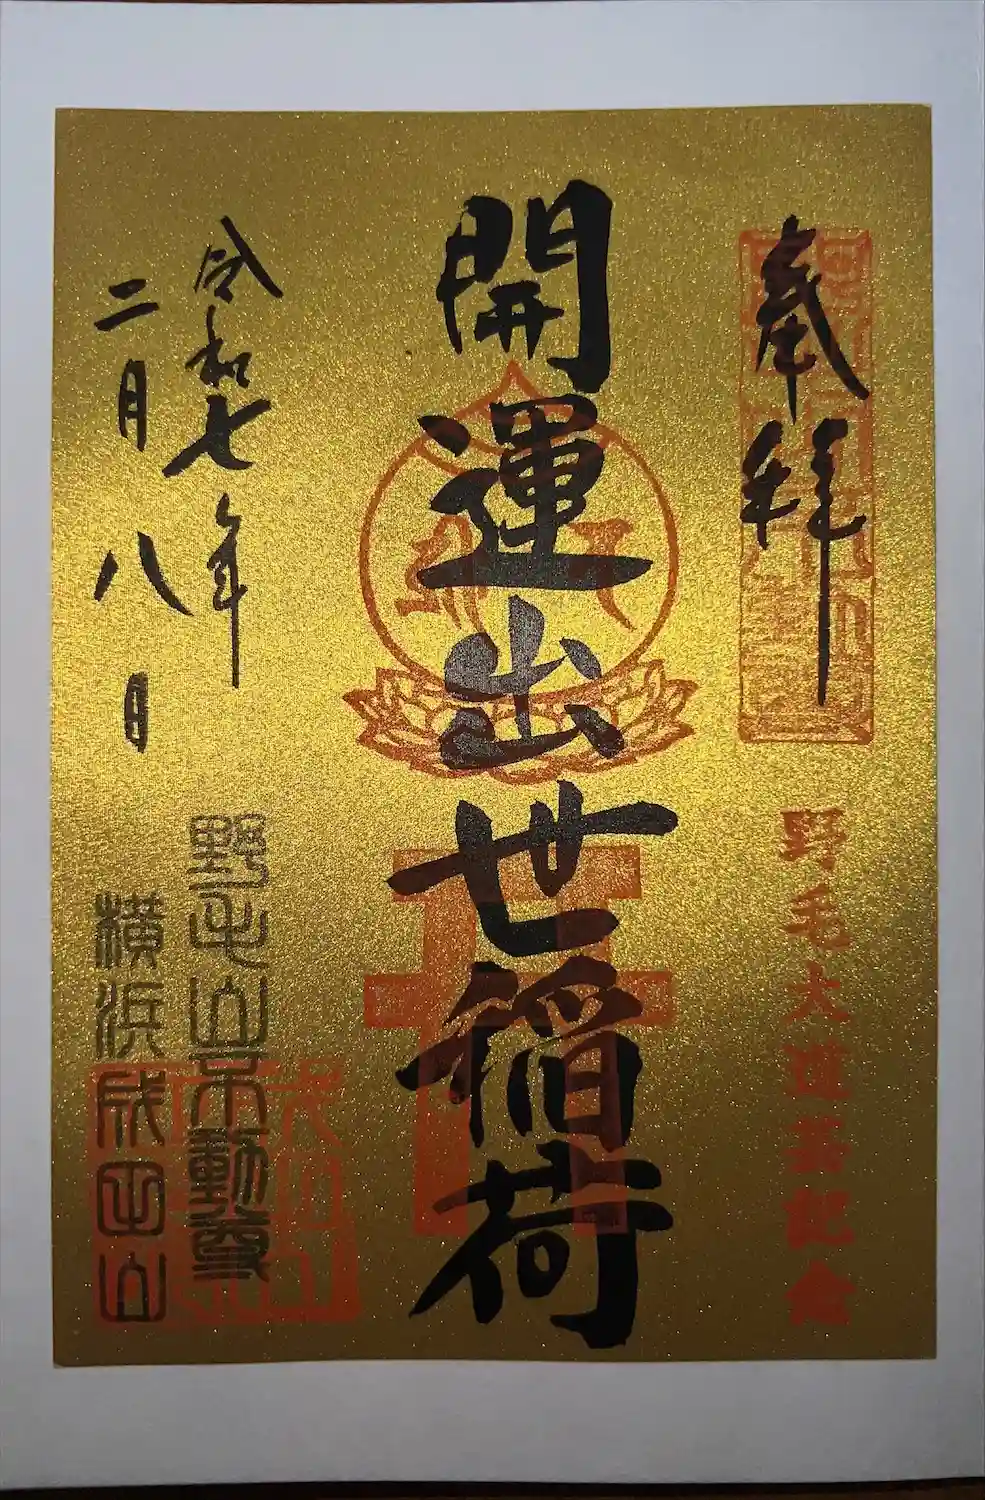 奉拝
野毛大道芸記念
開運出世稲荷
令和七年
二月八日
野毛山不動尊
横浜成田山